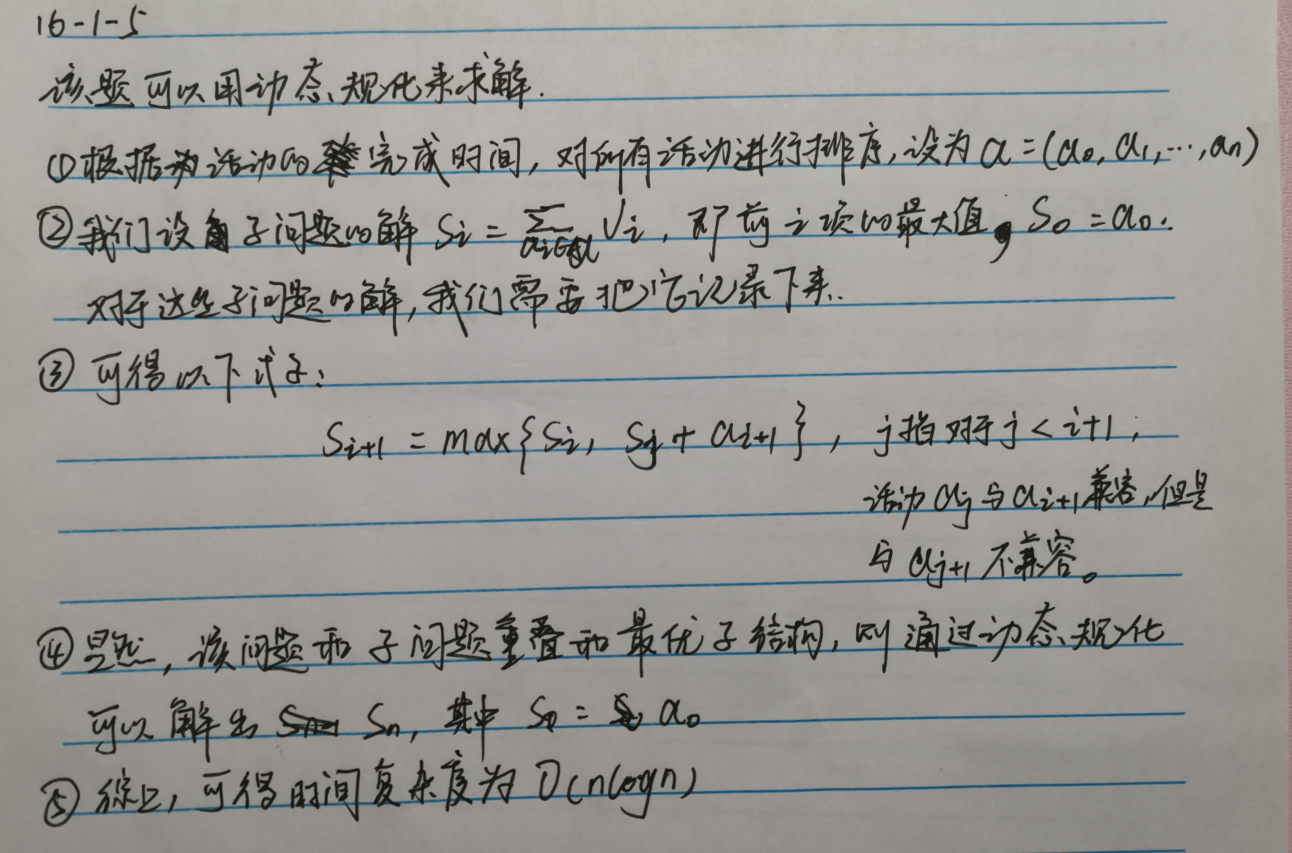 16-1-5
该题可以用动态规化来求解.
①根据活动的完成时间,对所有活动进行排序,设为 a=(a₀, a₁, ⋯, aₙ)
②我们设子问题的解 Sᵢ = ∑ Vᵢ, 即前 i 项的最大值, S₀ = a₀.
对于这些子问题的解,我们需要把它记录下来.
③ 可得以下式子:
Sᵢ₊₁ = max{Sᵢ, Sⱼ + aᵢ₊₁}, j指对于 j < i+1,
活动 aⱼ 与 aᵢ₊₁ 兼容,但是
与 aⱼ₊₁ 不兼容。
④ 显然,该问题和子问题重叠和最优子结构,则通过动态规化
可以解出 Sₙ, 其中 S₀ = a₀
⑤ 综上,可得时间复杂度为 O(nlogn)